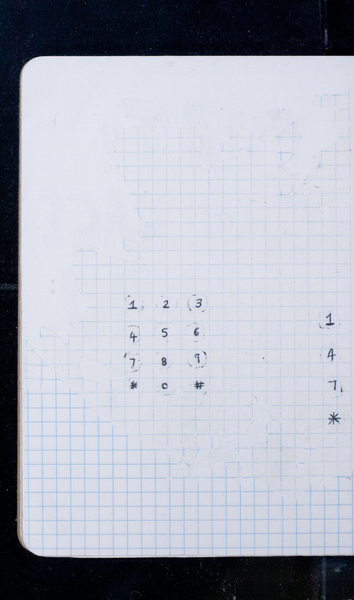 1 2 3
4 5 6
7 8 9
* 0 #
1
4
7
*